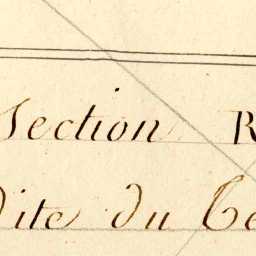 Section R
dite du Ce